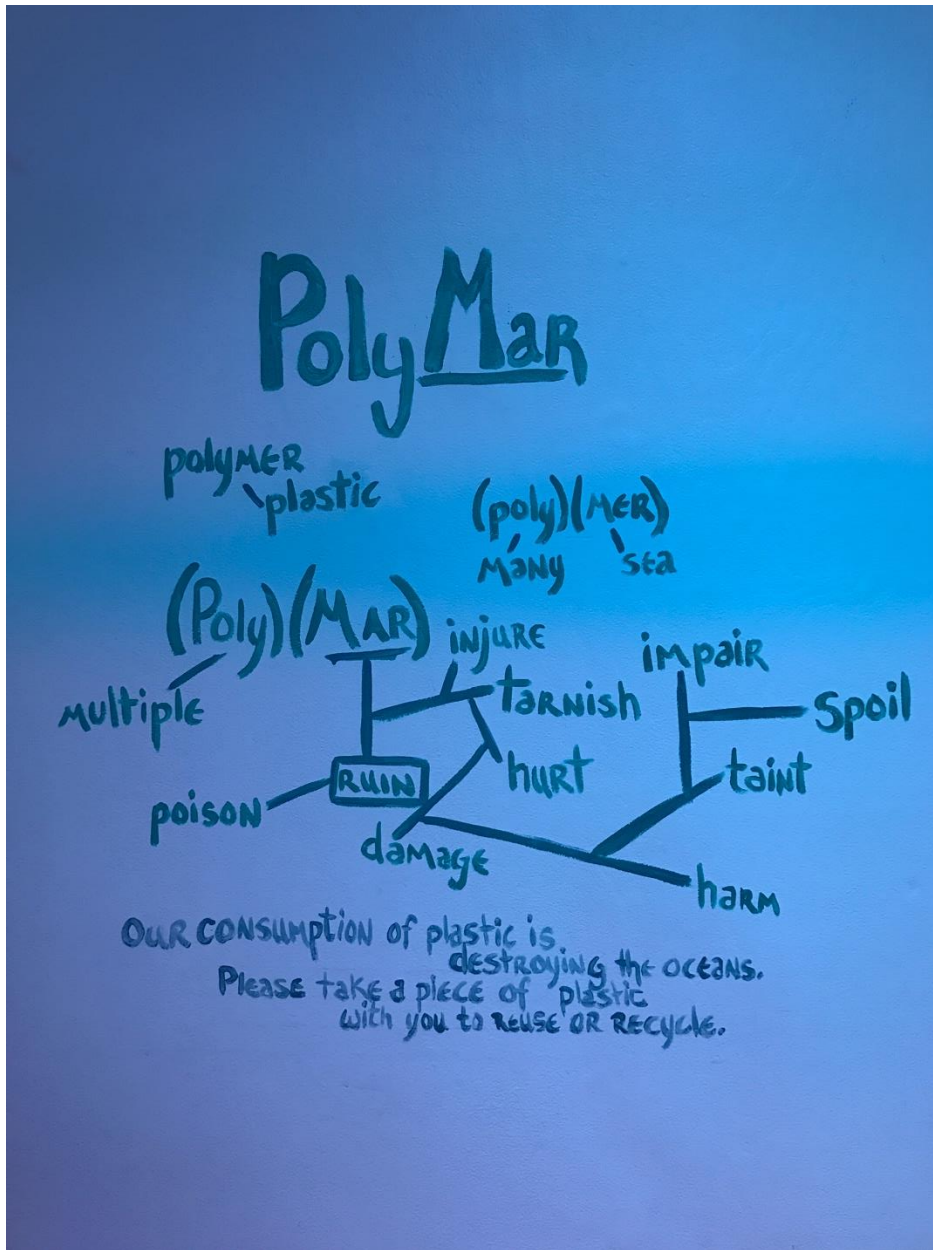 PolyMar
polymer
plastic
(poly)(MER)
Many sea
(Poly)(MAR)
injure
impair
multiple
tarnish
spoil
RUIN
hurt
taint
poison
damage
harm
Our consumption of plastic is
destroying the oceans.
Please take a piece of plastic
with you to reuse or recycle.